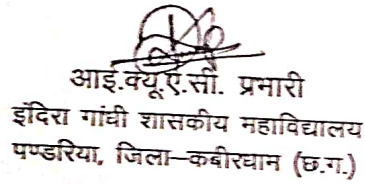 आई.क्यू.ए.सी. प्रभारी
इंदिरा गांधी शासकीय महाविद्यालय
पण्डरिया, जिला–कबीरधाम (छ.ग.)